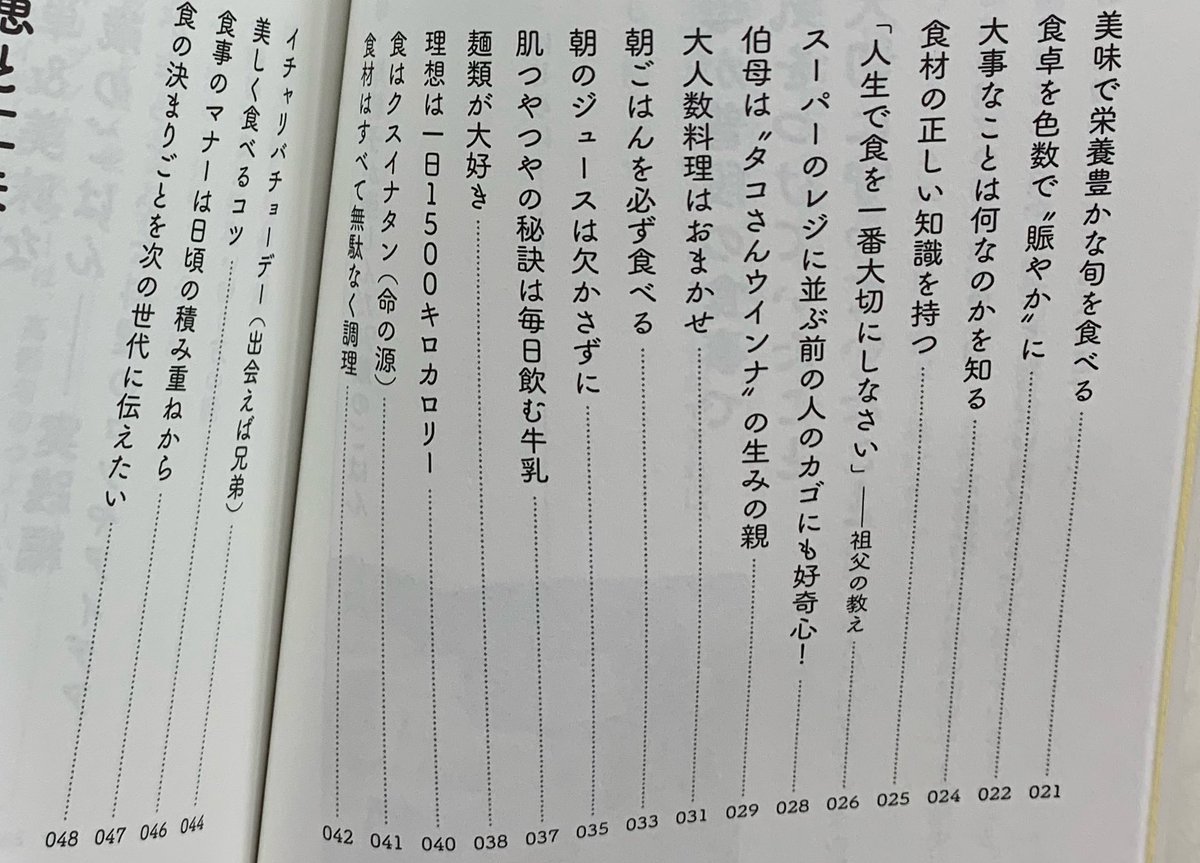 美味で栄養豊かな旬を食べる 021
食卓を色数で〝賑やか〟に 022
大事なことは何なのかを知る 024
食材の正しい知識を持つ 025
「人生で食を一番大切にしなさい」――祖父の教え 026
スーパーのレジに並ぶ前の人のカゴにも好奇心! 028
伯母は〝タコさんウインナ〟の生みの親 029
大人数料理はおまかせ 031
朝ごはんを必ず食べる 033
朝のジュースは欠かさずに 035
肌つやつやの秘訣は毎日飲む牛乳 037
麺類が大好き 038
理想は一日1500キロカロリー 040
食はクスイナタン(命の源) 041
食材はすべて無駄なく調理 042
イチャリバチョーデー(出会えば兄弟) 044
美しく食べるコツ 046
食事のマナーは日頃の積み重ねから 047
食の決まりごとを次の世代に伝えたい 048